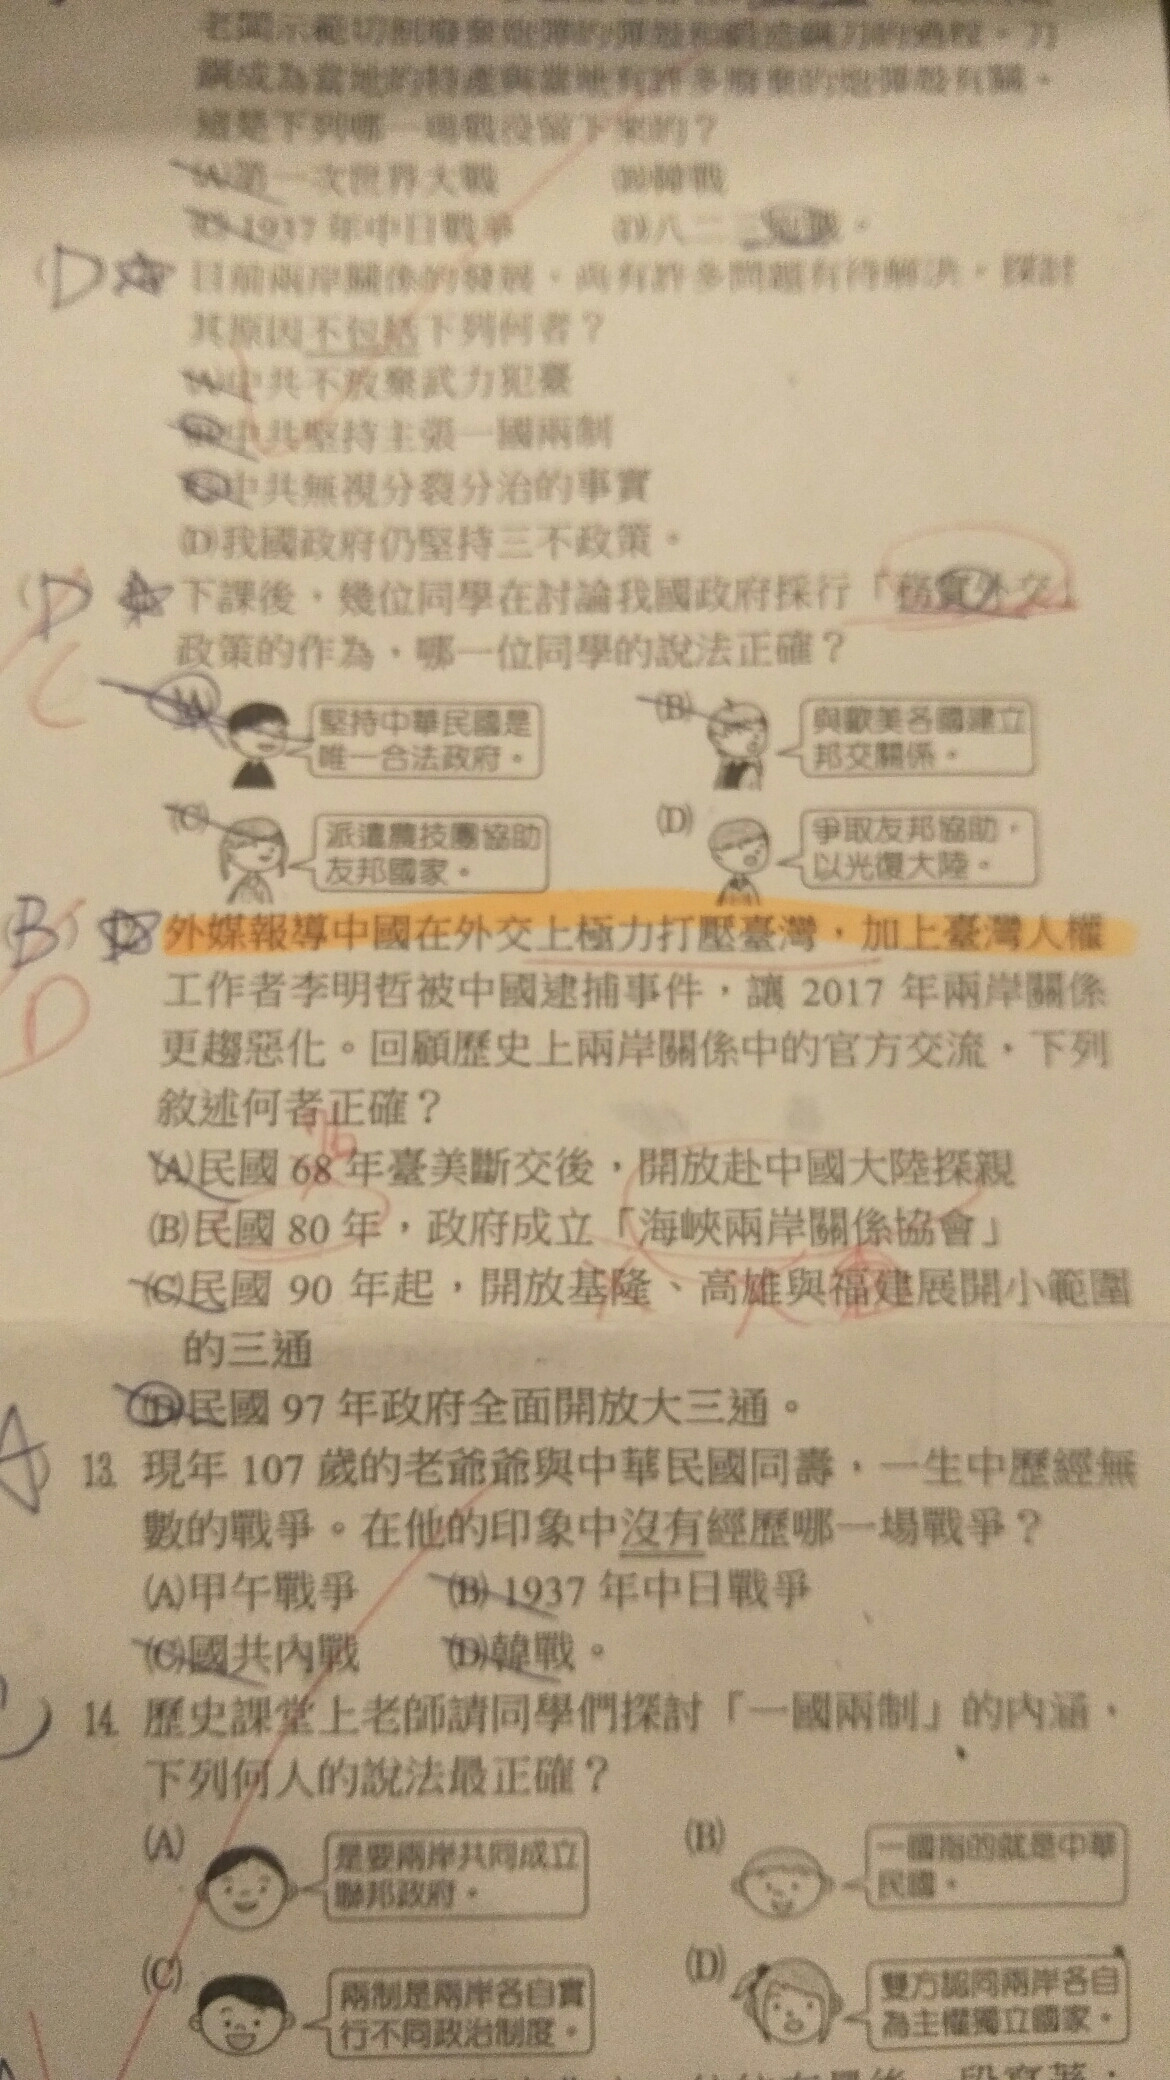 老闆示範切割廢棄炮彈的彈殼和鍛造鋼刀的過程。刀
鋼成為當地的特產與當地有許多廢棄的炮彈殼有關。
這是下列哪一場戰役留下來的？
(A)第一次世界大戰 (B)韓戰
(C) 1937 年中日戰爭 (D)八二三砲戰。
(D) 目前兩岸關係的發展，尚有許多問題有待解決，探討
其原因不包括下列何者？
(A)中共不放棄武力犯臺
(B)中共堅持主張一國兩制
(C)中共無視分裂分治的事實
(D)我國政府仍堅持三不政策。
(D) 下課後，幾位同學在討論我國政府採行「務實外交」
C 政策的作為，哪一位同學的說法正確？
(A) 堅持中華民國是
唯一合法政府。
(B) 與歐美各國建立
邦交關係。
(C) 派遣農技團協助
友邦國家。
(D) 爭取友邦協助，
以光復大陸。
B 外媒報導中國在外交上極力打壓臺灣，加上臺灣人權
D 工作者李明哲被中國逮捕事件，讓 2017 年兩岸關係
更趨惡化。回顧歷史上兩岸關係中的官方交流，下列
敘述何者正確？
76
(A)民國 68 年臺美斷交後，開放赴中國大陸探親
(B)民國 80 年，政府成立「海峽兩岸關係協會」
(C)民國 90 年起，開放基隆、高雄與福建展開小範圍
的三通
(D)民國 97 年政府全面開放大三通。
A) 13. 現年 107 歲的老爺爺與中華民國同壽，一生中歷經無
數的戰爭。在他的印象中沒有經歷哪一場戰爭？
(A)甲午戰爭 (B) 1937 年中日戰爭
(C)國共內戰 (D)韓戰。
) 14. 歷史課堂上老師請同學們探討「一國兩制」的內涵，
下列何人的說法最正確？
(A) 是要兩岸共同成立
聯邦政府。
(B) 一國指的就是中華
民國。
(C) 兩制是兩岸各自實
行不同政治制度。
(D) 雙方認同兩岸各自
為主權獨立國家。